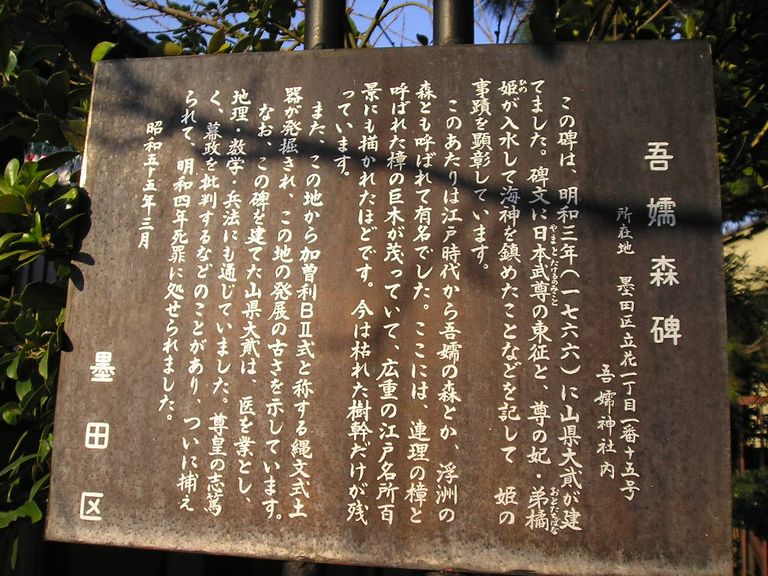 吾嬬森碑
所在地 墨田区立花一丁目一番十五号
吾嬬神社内
この碑は、明和三年(一七六六)に山県大貳が建
やまとたけるのみこと おとたちばな
てました。碑文に日本武尊の東征と、尊の妃・弟橘
ひめ
姫が入水して海神を鎮めたことなどを記して 姫の
事蹟を顕彰しています。
このあたりは江戸時代から吾嬬の森とか、浮洲の
森とも呼ばれて有名でした。ここには、連理の樟と
呼ばれた樟の巨木が茂っていて、広重の江戸名所百
景にも描かれたほどです。今は枯れた樹幹だけが残
っています。
また、この地から加曽利BⅡ式と称する縄文式土
器が発掘され、この地の発展の古さを示しています。
なお、この碑を建てた山県大貳は、医を業とし、
地理・数学・兵法にも通じていました。尊皇の志篤
く、幕政を批判するなどのことがあり、ついに捕え
られて、明和四年死罪に処せられました。
昭和五十五年三月
墨田区